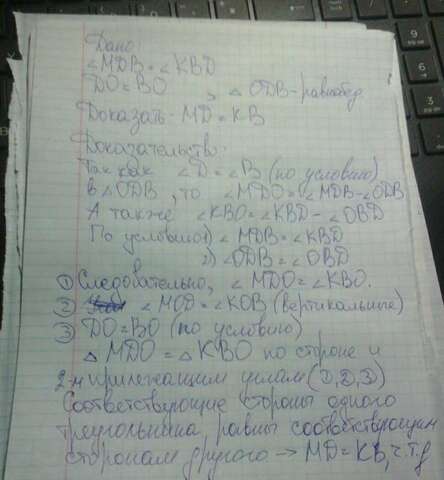 Дано:
∠MDB = ∠KBD
DO = BO , △ ODB - равнобед
Доказать: MD = KB
Доказательство:
Так как ∠D = ∠B (по условию)
в ∠ODB, то ∠MDO = ∠MDB - ∠ODB
А также ∠KBO = ∠KBD - ∠OBD
По условию 1) ∠MDB = ∠KBD
2) ∠ODB = ∠OBD
① Следовательно, ∠MDO = ∠KBO.
② ∠MOD = ∠KOB (вертикальные)
③ DO = BO (по условию)
△ MDO = △ KBO по стороне и
2-м прилежащим углам (1, 2, 3)
Соответствующие стороны одного
треугольника равны соответствующим
сторонам другого → MD = KB, ч.т.д